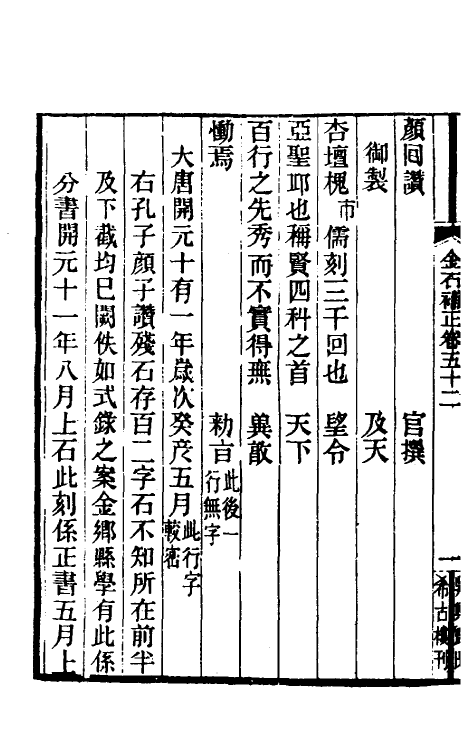 金石補正卷五十二
一
希古樓刊
顏回讚　官撰
御製　及天
杏壇槐市儒刻三千回也　望令
亞聖邛也稱賢四科之首　天下
百行之先秀而不實得無　冀敢
慟焉　勑言此後一行無字
大唐開元十有一年歲次癸亥五月此行字較密
右孔子顏子讚殘石存百二字石不知所在前半
及下截均已闕佚如式錄之案金鄉縣學有此係
分書開元十一年八月上石此刻係正書五月上